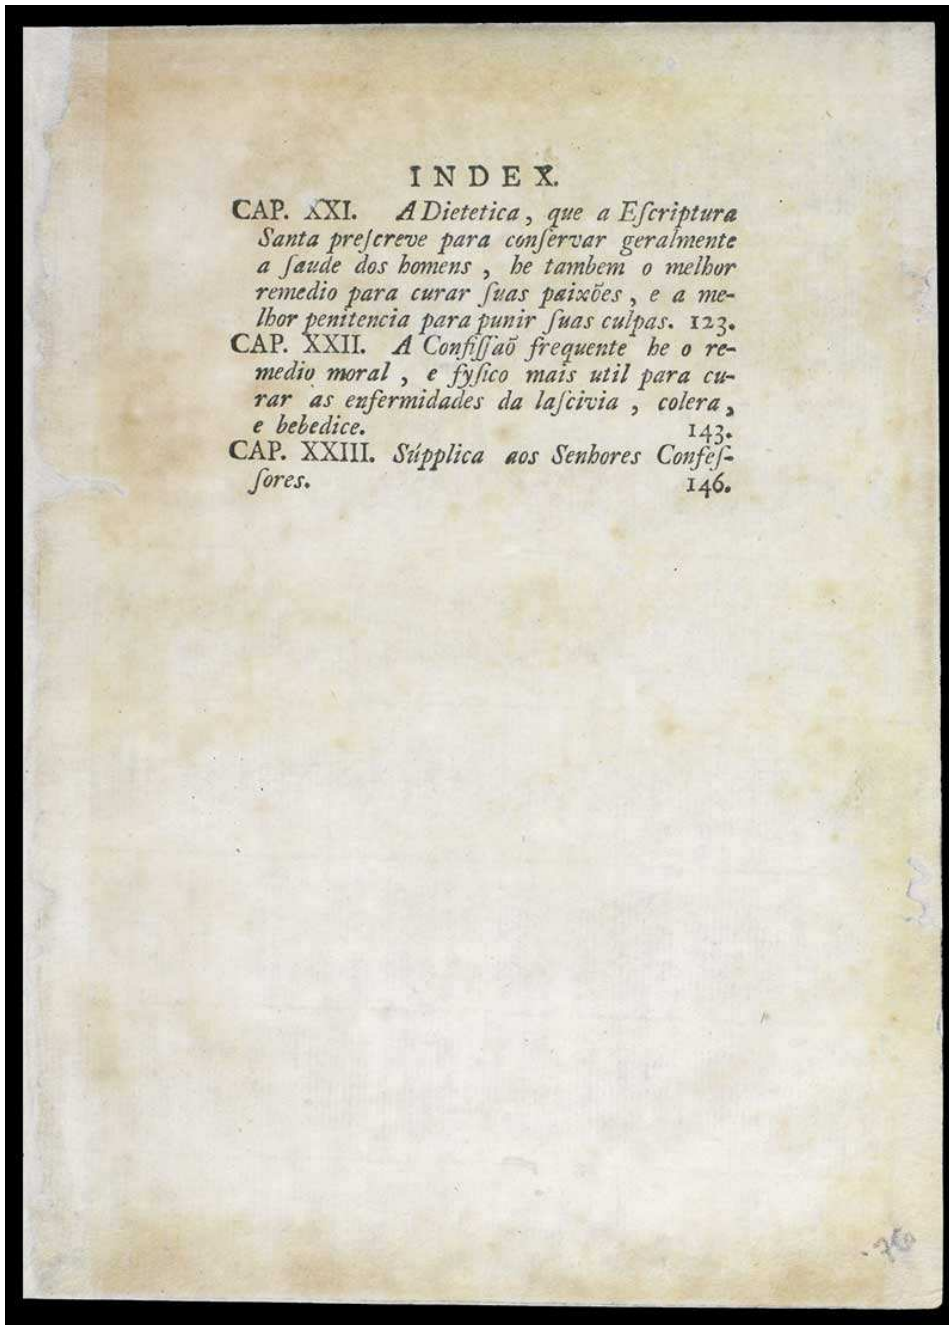 INDEX.
CAP. XXI. A Dietetica, que a Eſcriptura
Santa preſcreve para conſervar geralmente
a ſaude dos homens, he tambem o melhor
remedio para curar ſuas paixões, e a me-
lhor penitencia para punir ſuas culpas. 123.
CAP. XXII. A Confiſſaõ frequente he o re-
medio moral, e fyſico mais util para cu-
rar as enfermidades da laſcivia, colera,
e bebedice. 143.
CAP. XXIII. Súpplica aos Senhores Confeſ-
ſores. 146.